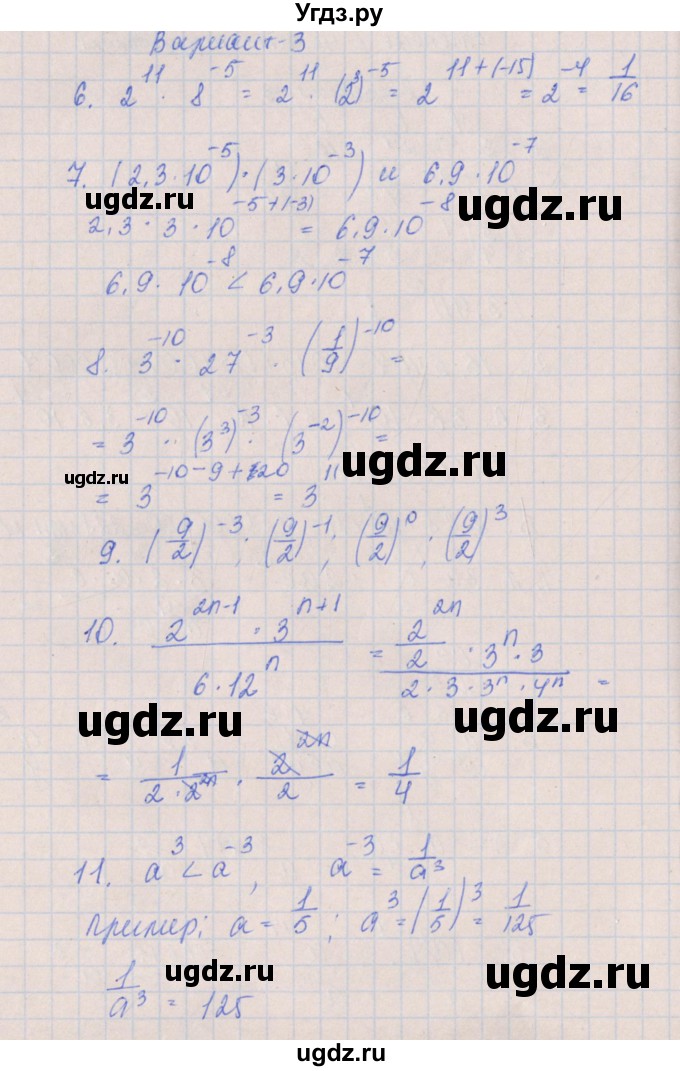 Угдз.ру
Вариант-3
6. 2^11 · 8^-5 = 2^11 · (2^3)^-5 = 2^11+(-15) = 2^-4 = 1/16
7. (2,3·10^-5)·(3·10^-3) и 6,9·10^-7
ugdz.ru
ugdz.ru
2,3 · 3 · 10^-5+(-3) = 6,9·10^-8
6,9 · 10^-8 < 6,9·10^-7
8. 3^-10 · 27^-3 · (1/9)^-10 =
= 3^-10 · (3^3)^-3 · (3^-2)^-10 =
ugdz.ru
ugdz.ru
= 3^-10-9+20 = 3^11
9. (9/2)^-3; (9/2)^-1; (9/2)^0; (9/2)^3
10. 2^2n-1 · 3^n+1 / 6·12^n = 2^2n/2 · 3^n · 3 / 2·3·3^n·4^n =
ugdz.ru
ugdz.ru
= 1/2·2^2n · 2^2n/2 = 1/4
11. a^3 < a^-3, a^-3 = 1/a^3
Пример: a = 1/5; a^3 = (1/5)^3 = 1/125
ugdz.ru
ugdz.ru
1/a^3 = 125
ugdz.ru